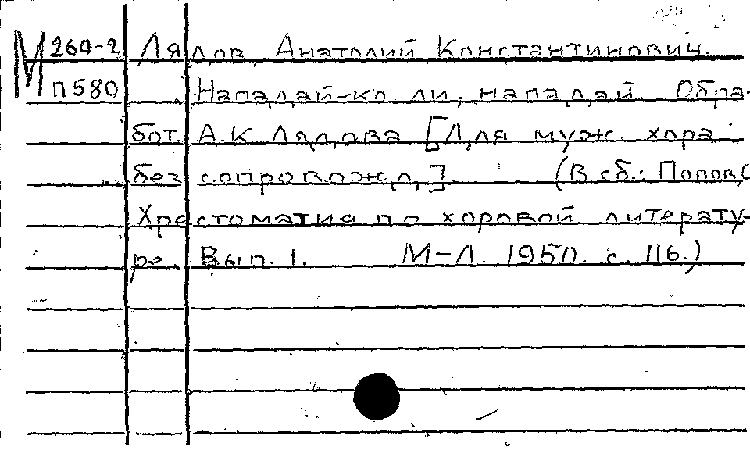 М 264-2 Лядов, Анатолий Константинович.
П580 Нападай-ко ли, нападай. Обра-
бот. А.К. Лядова [Для муж. хора
без сопровожд.] (В сб.: Попов, С.
Хрестоматия по хоровой литерату-
ре. Вып. 1. М-Л. 1950. с. 116.)